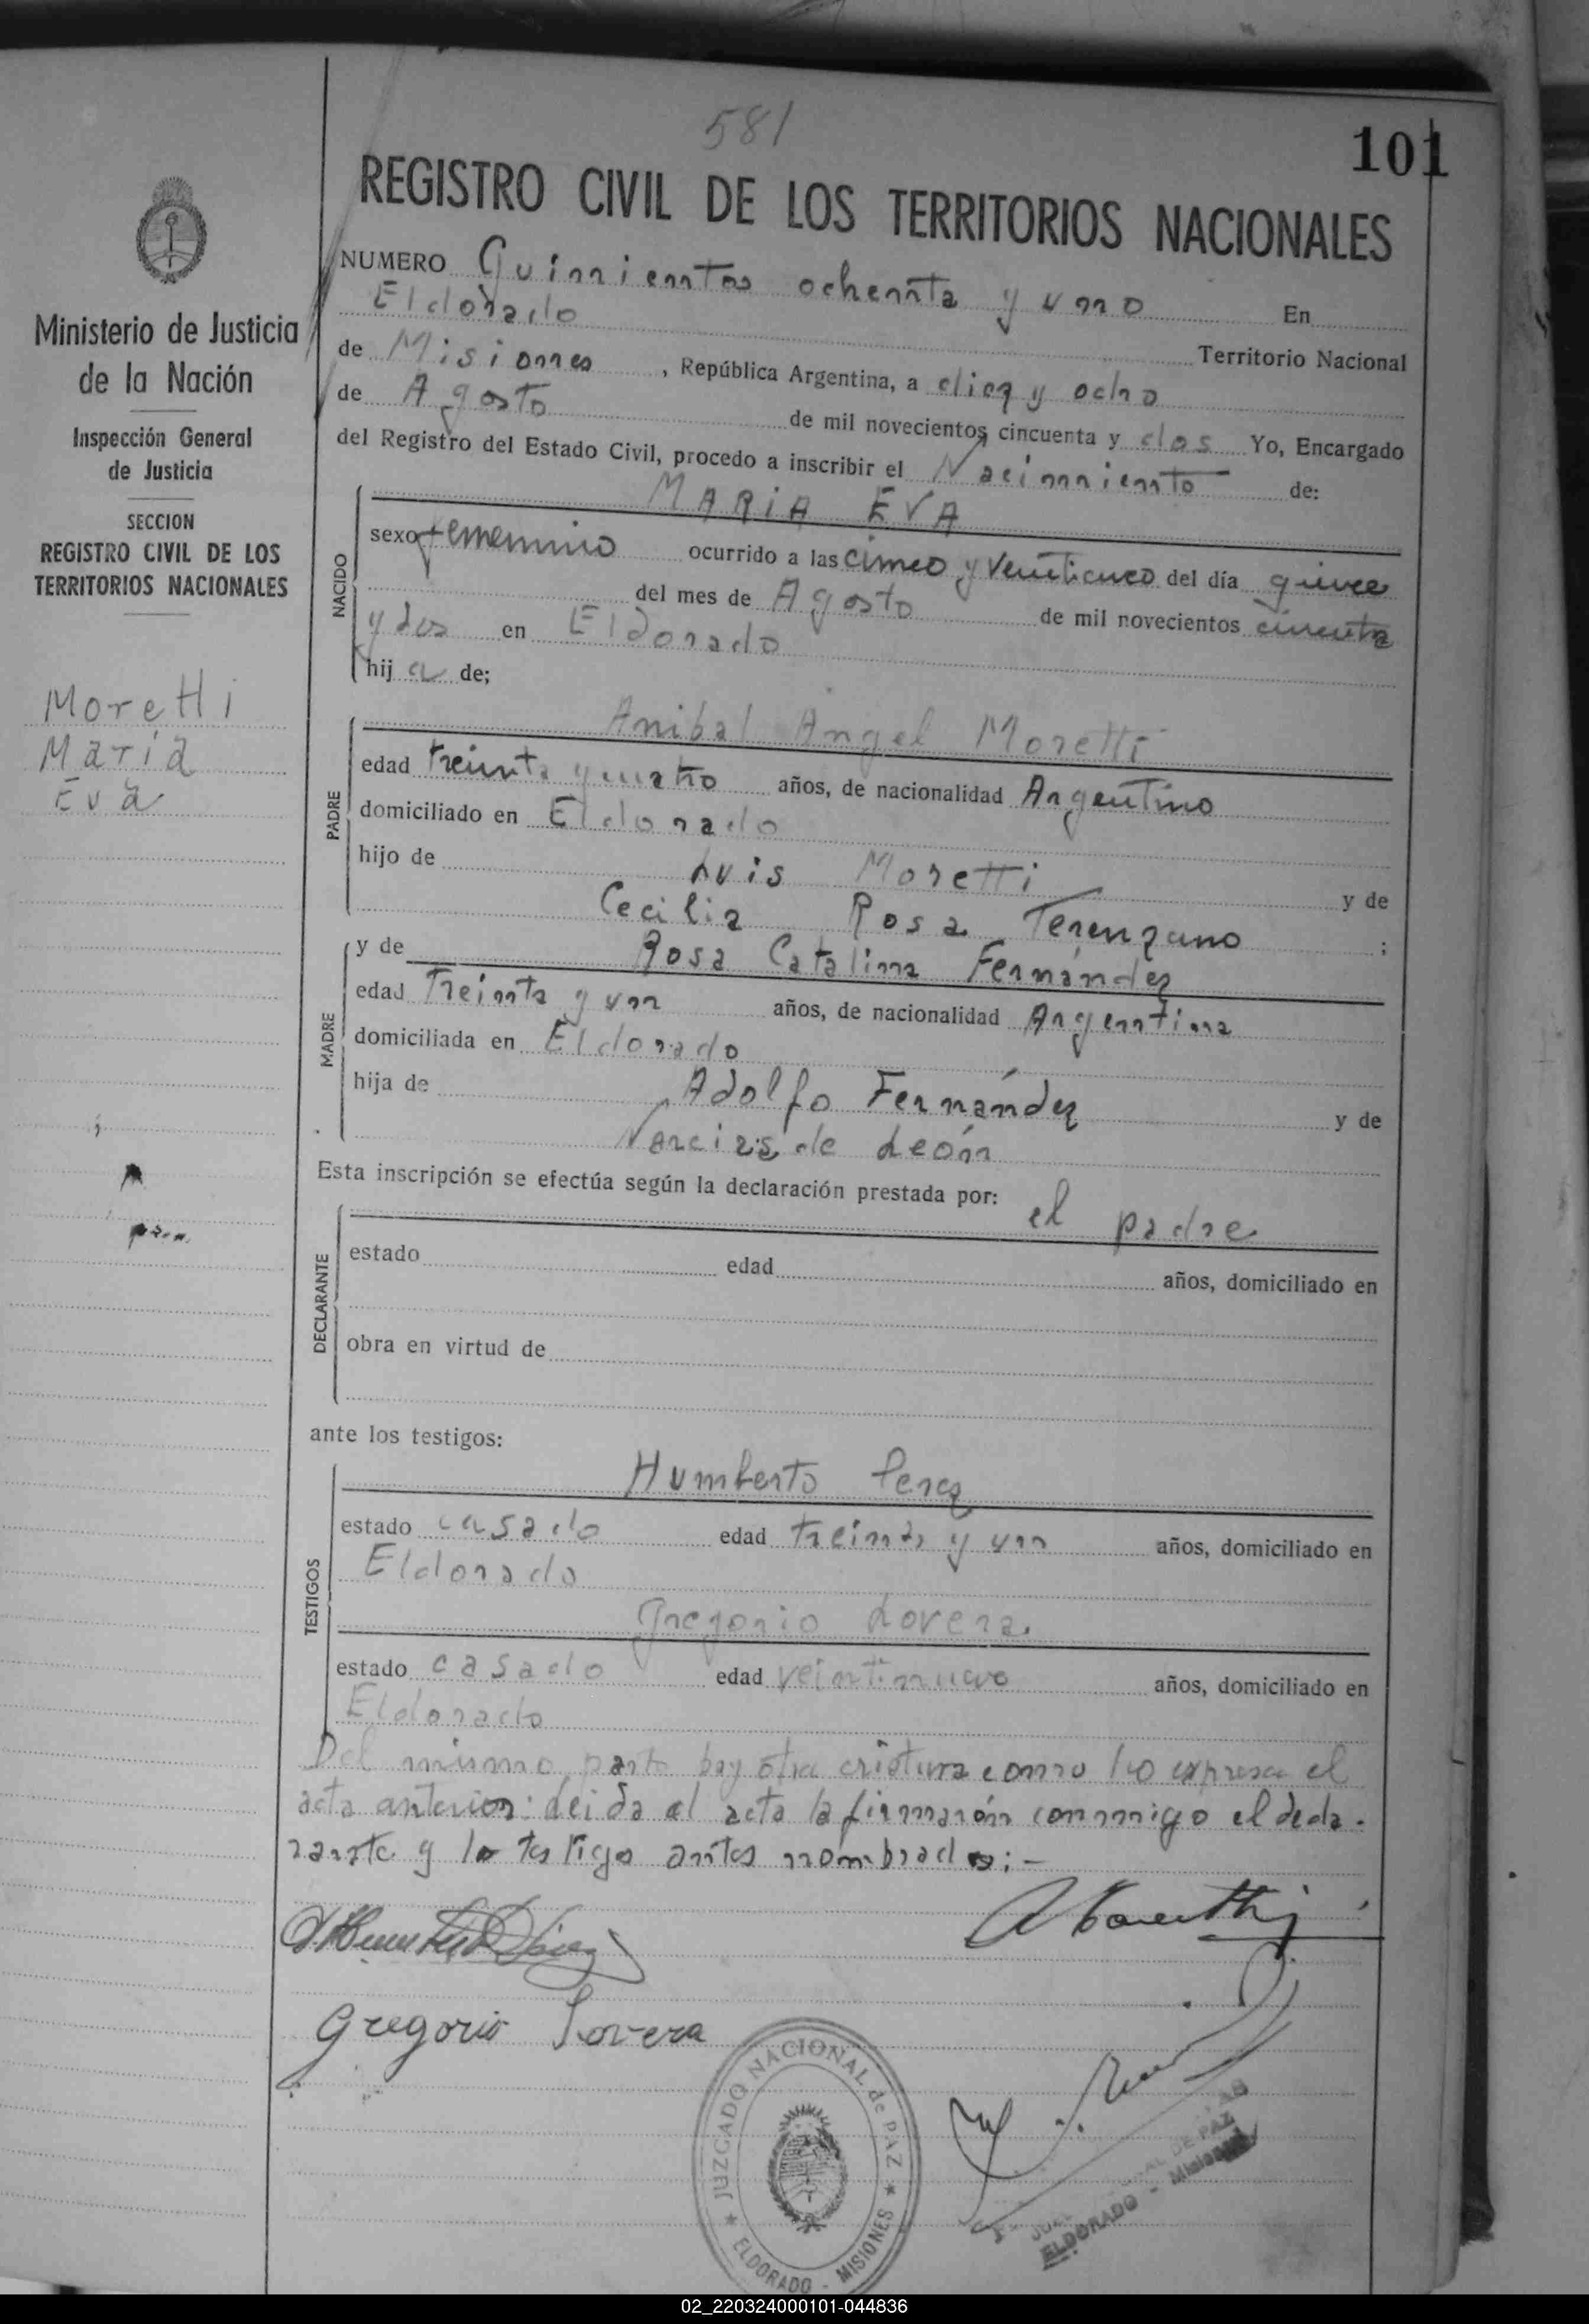 581
101
REGISTRO CIVIL DE LOS TERRITORIOS NACIONALES
Ministerio de Justicia
de la Nación
Inspección General
de Justicia
SECCION
REGISTRO CIVIL DE LOS
TERRITORIOS NACIONALES
Moretti
Maria
Eva
NUMERO Quinientos ochenta y uno En
Eldorado Territorio Nacional
de Misiones, República Argentina, a diez y ocho
de Agosto de mil novecientos cincuenta y dos Yo, Encargado
del Registro del Estado Civil, procedo a inscribir el Nacimiento de:
NACIDO
MARIA EVA
sexo femenino ocurrido a las cinco y veinticinco del día quince
del mes de Agosto de mil novecientos cincuenta
y dos en Eldorado
hija de;
PADRE
Anibal Angel Moretti
edad treinta y cuatro años, de nacionalidad Argentino
domiciliado en Eldorado
hijo de Luis Moretti y de
Cecilia Rosa Terenzano ;
MADRE
y de Rosa Catalina Fernández
edad Treinta y un años, de nacionalidad Argentina
domiciliada en Eldorado
hija de Adolfo Fernández y de
Narcisa de León
Esta inscripción se efectúa según la declaración prestada por:
el padre
DECLARANTE
estado edad años, domiciliado en
obra en virtud de
ante los testigos:
TESTIGOS
Humberto Perez
estado casado edad treinta y un años, domiciliado en
Eldorado
Gregorio Lovera
estado casado edad veintinueve años, domiciliado en
Eldorado
Del mismo parto hay otra criatura como lo expresa el
acta anterior: leida el acta la firmarón conmigo el decla-
rante y los testigos antes nombrados:-
Gregorio Lovera
JUZGADO NACIONAL de PAZ
ELDORADO - MISIONES
DE PAZ
ELDORADO - Misiones
02_220324000101-044836